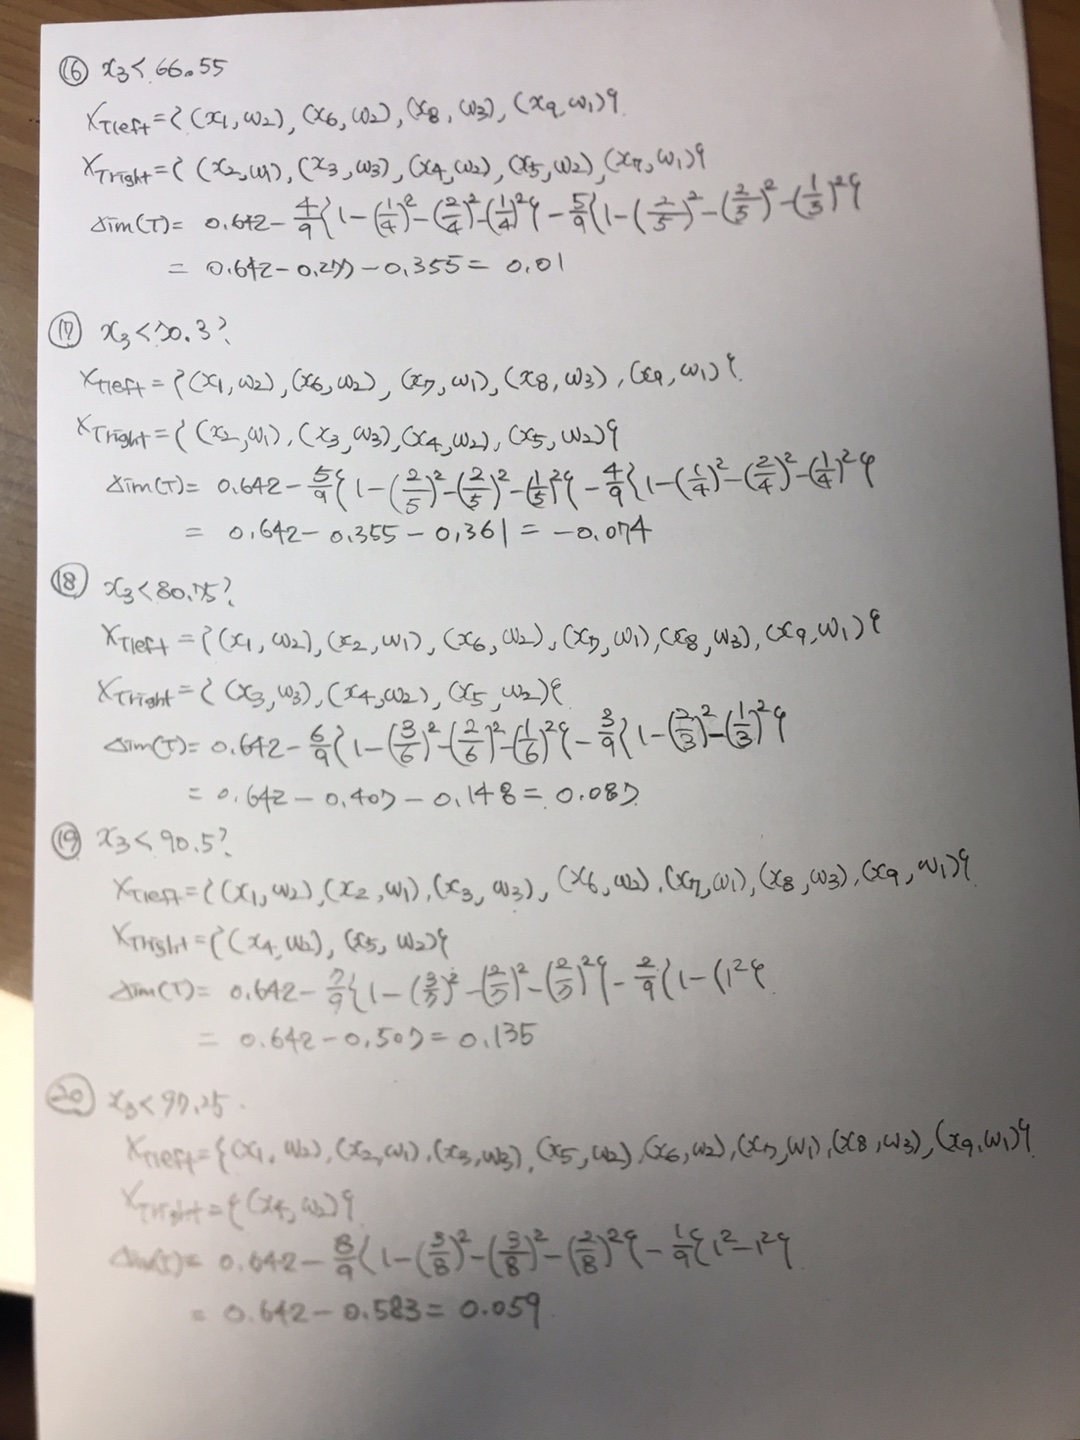 ⑯ x₃ < 66.55
X_Tleft = {(x₁, ω₂), (x₆, ω₂), (x₈, ω₃), (x₉, ω₁)}
X_Tright = {(x₂, ω₁), (x₃, ω₃), (x₄, ω₂), (x₅, ω₂), (x₇, ω₁)}
Δim(T) = 0.642 - 4/9{1-(1/4)²-(2/4)²-(1/4)²} - 5/9{1-(2/5)²-(2/5)²-(1/5)²}
= 0.642 - 0.277 - 0.355 = 0.01
⑰ x₃ < 70.3?
X_Tleft = {(x₁, ω₂), (x₆, ω₂), (x₇, ω₁), (x₈, ω₃), (x₉, ω₁)}
X_Tright = {(x₂, ω₁), (x₃, ω₃), (x₄, ω₂), (x₅, ω₂)}
Δim(T) = 0.642 - 5/9{1-(2/5)²-(2/5)²-(1/5)²} - 4/9{1-(1/4)²-(2/4)²-(1/4)²}
= 0.642 - 0.355 - 0.361 = -0.074
⑱ x₃ < 80.75?
X_Tleft = {(x₁, ω₂), (x₂, ω₁), (x₆, ω₂), (x₇, ω₁), (x₈, ω₃), (x₉, ω₁)}
X_Tright = {(x₃, ω₃), (x₄, ω₂), (x₅, ω₂)}
Δim(T) = 0.642 - 6/9{1-(3/6)²-(2/6)²-(1/6)²} - 3/9{1-(2/3)²-(1/3)²}
= 0.642 - 0.407 - 0.148 = 0.087
⑲ x₃ < 90.5?
X_Tleft = {(x₁, ω₂), (x₂, ω₁), (x₃, ω₃), (x₆, ω₂), (x₇, ω₁), (x₈, ω₃), (x₉, ω₁)}
X_Tright = {(x₄, ω₂), (x₅, ω₂)}
Δim(T) = 0.642 - 7/9{1-(3/7)²-(2/7)²-(2/7)²} - 2/9{1-(1²}
= 0.642 - 0.507 = 0.135
⑳ x₃ < 97.25
X_Tleft = {(x₁, ω₂), (x₂, ω₁), (x₃, ω₃), (x₅, ω₂), (x₆, ω₂), (x₇, ω₁), (x₈, ω₃), (x₉, ω₁)}
X_Tright = {(x₄, ω₂)}
Δim(T) = 0.642 - 8/9{1-(3/8)²-(3/8)²-(2/8)²} - 1/9{1²-1²}
= 0.642 - 0.583 = 0.059